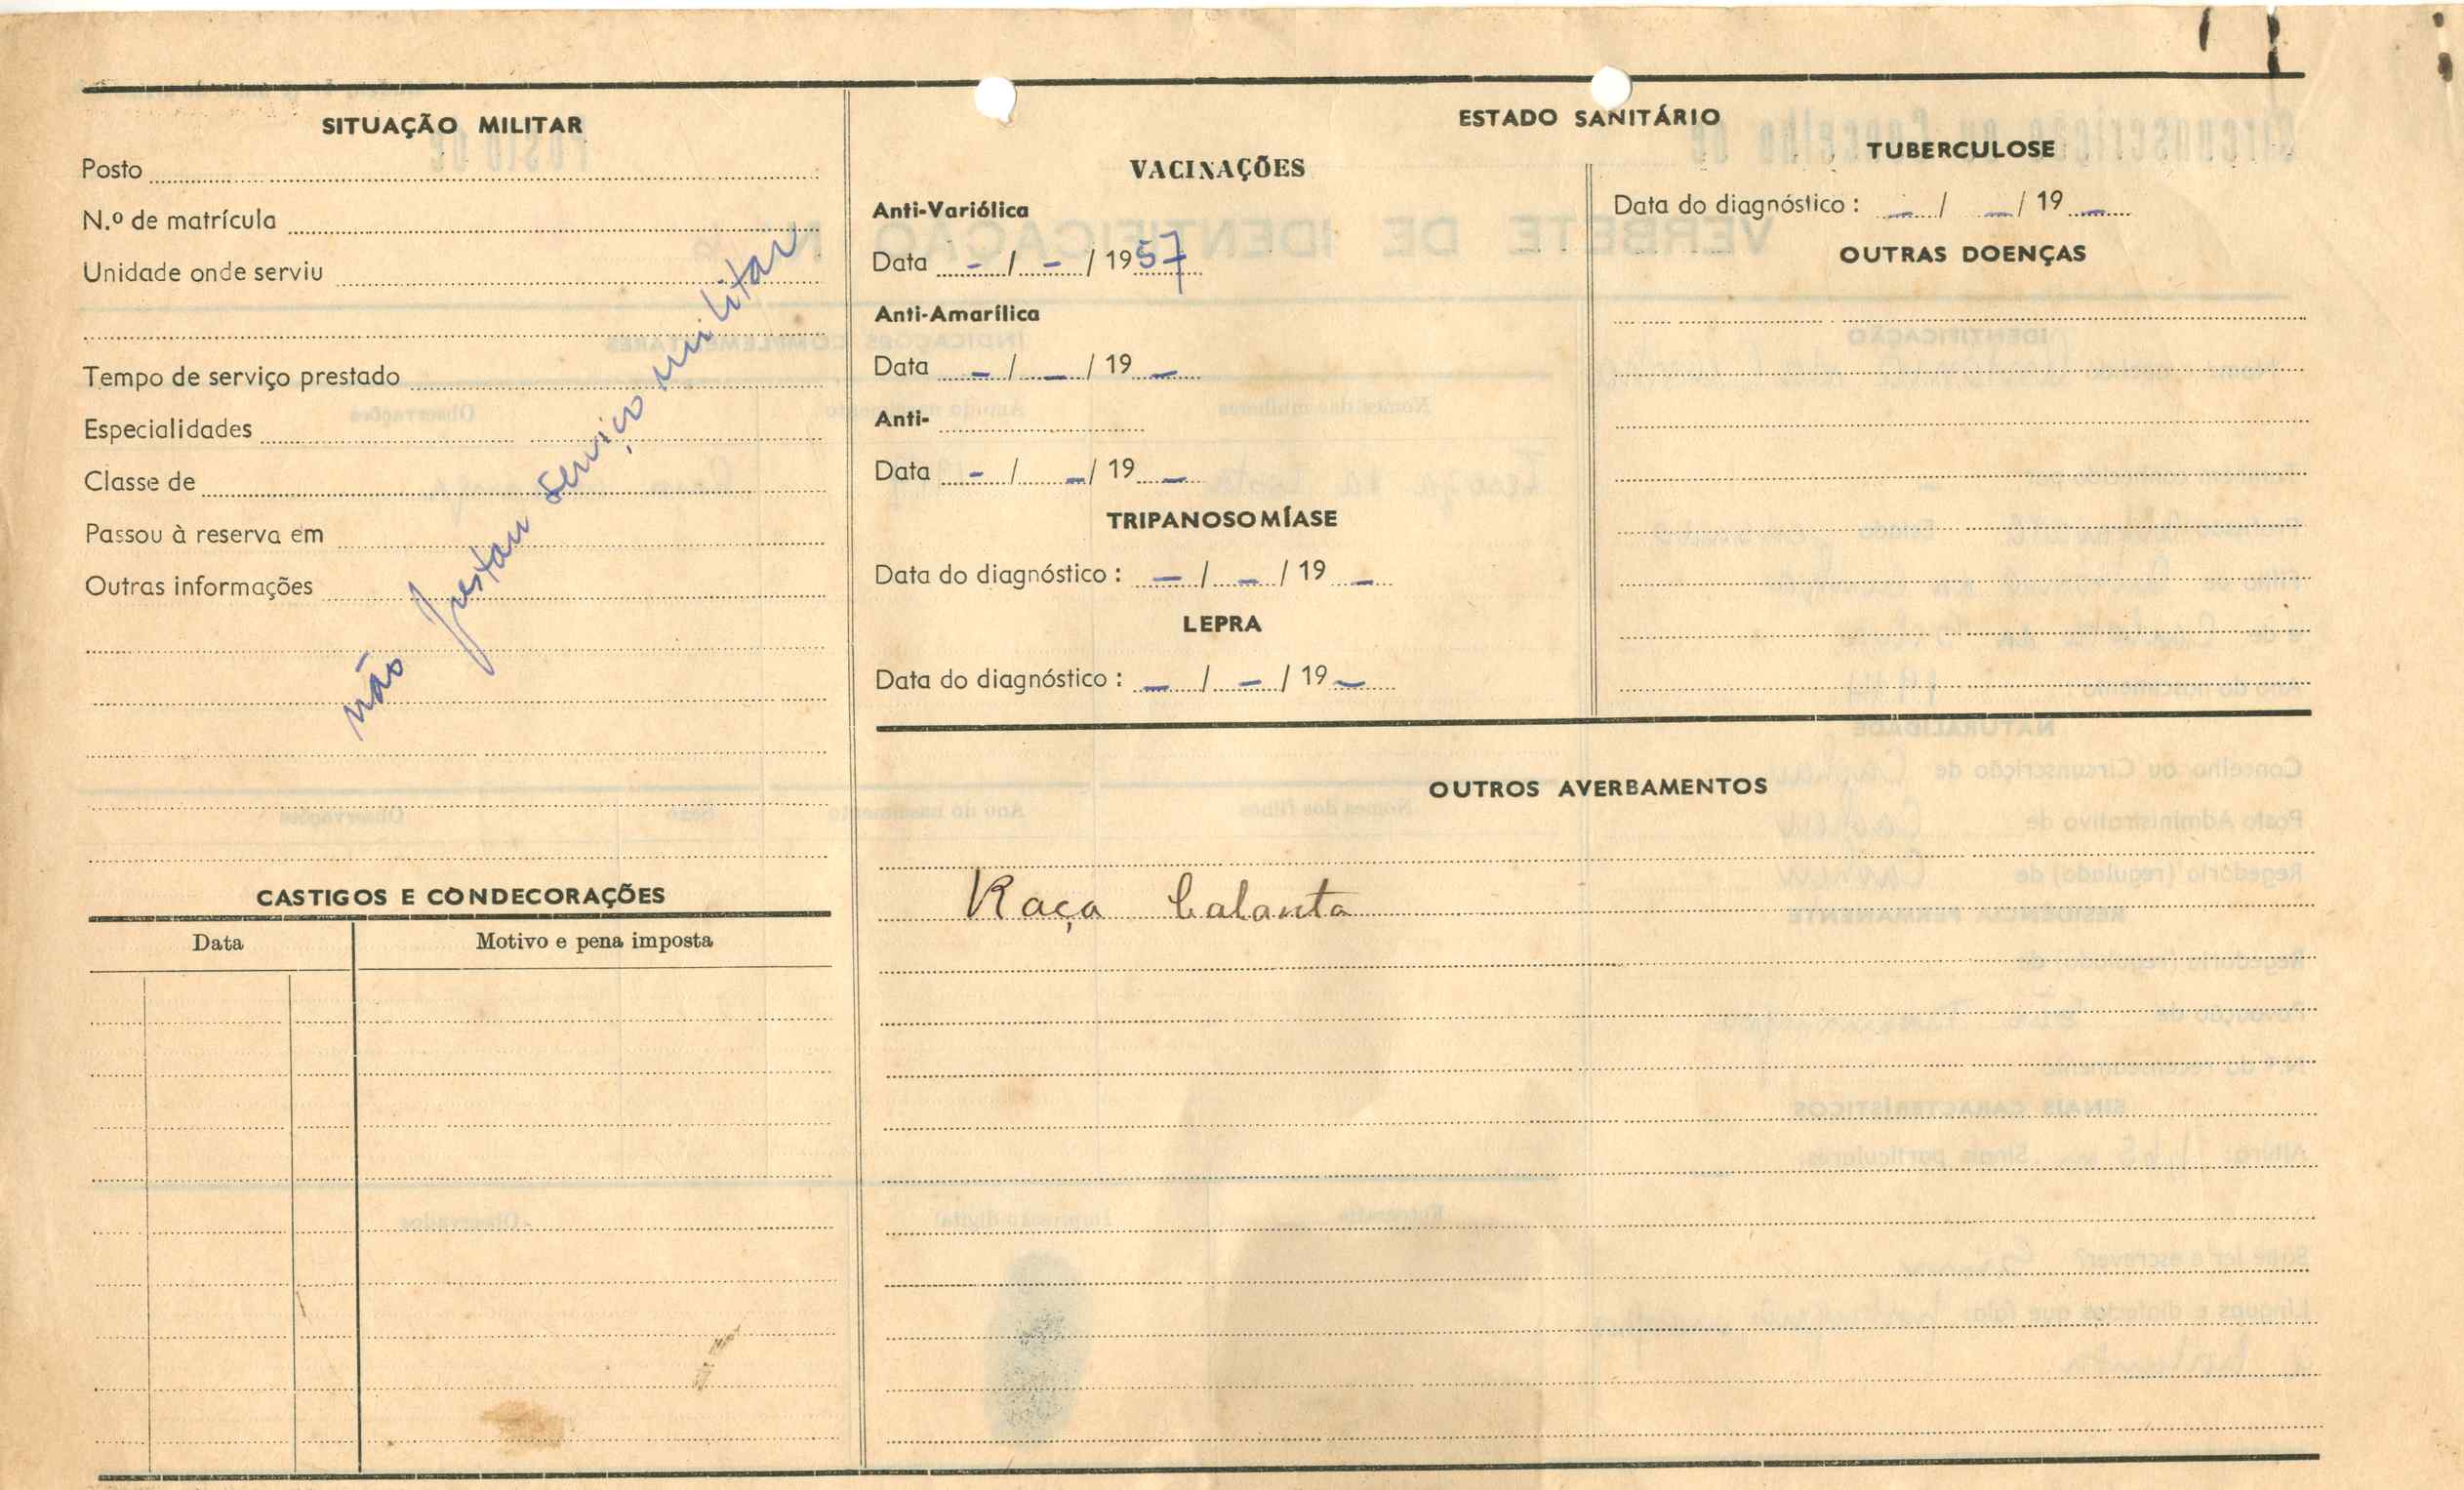 SITUAÇÃO MILITAR
Posto
N.º de matrícula
Unidade onde serviu
Tempo de serviço prestado
Especialidades
Classe de
Passou à reserva em
Outras informações
não prestou serviço militar
CASTIGOS E CONDECORAÇÕES
Data Motivo e pena imposta
ESTADO SANITÁRIO
VACINAÇÕES
Anti-Variólica
Data - / - / 1957
Anti-Amarílica
Data - / - / 19 -
Anti-
Data - / - / 19 -
TRIPANOSOMÍASE
Data do diagnóstico : - / - / 19 -
LEPRA
Data do diagnóstico : - / - / 19 -
TUBERCULOSE
Data do diagnóstico : - / - / 19 -
OUTRAS DOENÇAS
OUTROS AVERBAMENTOS
Raça balanta